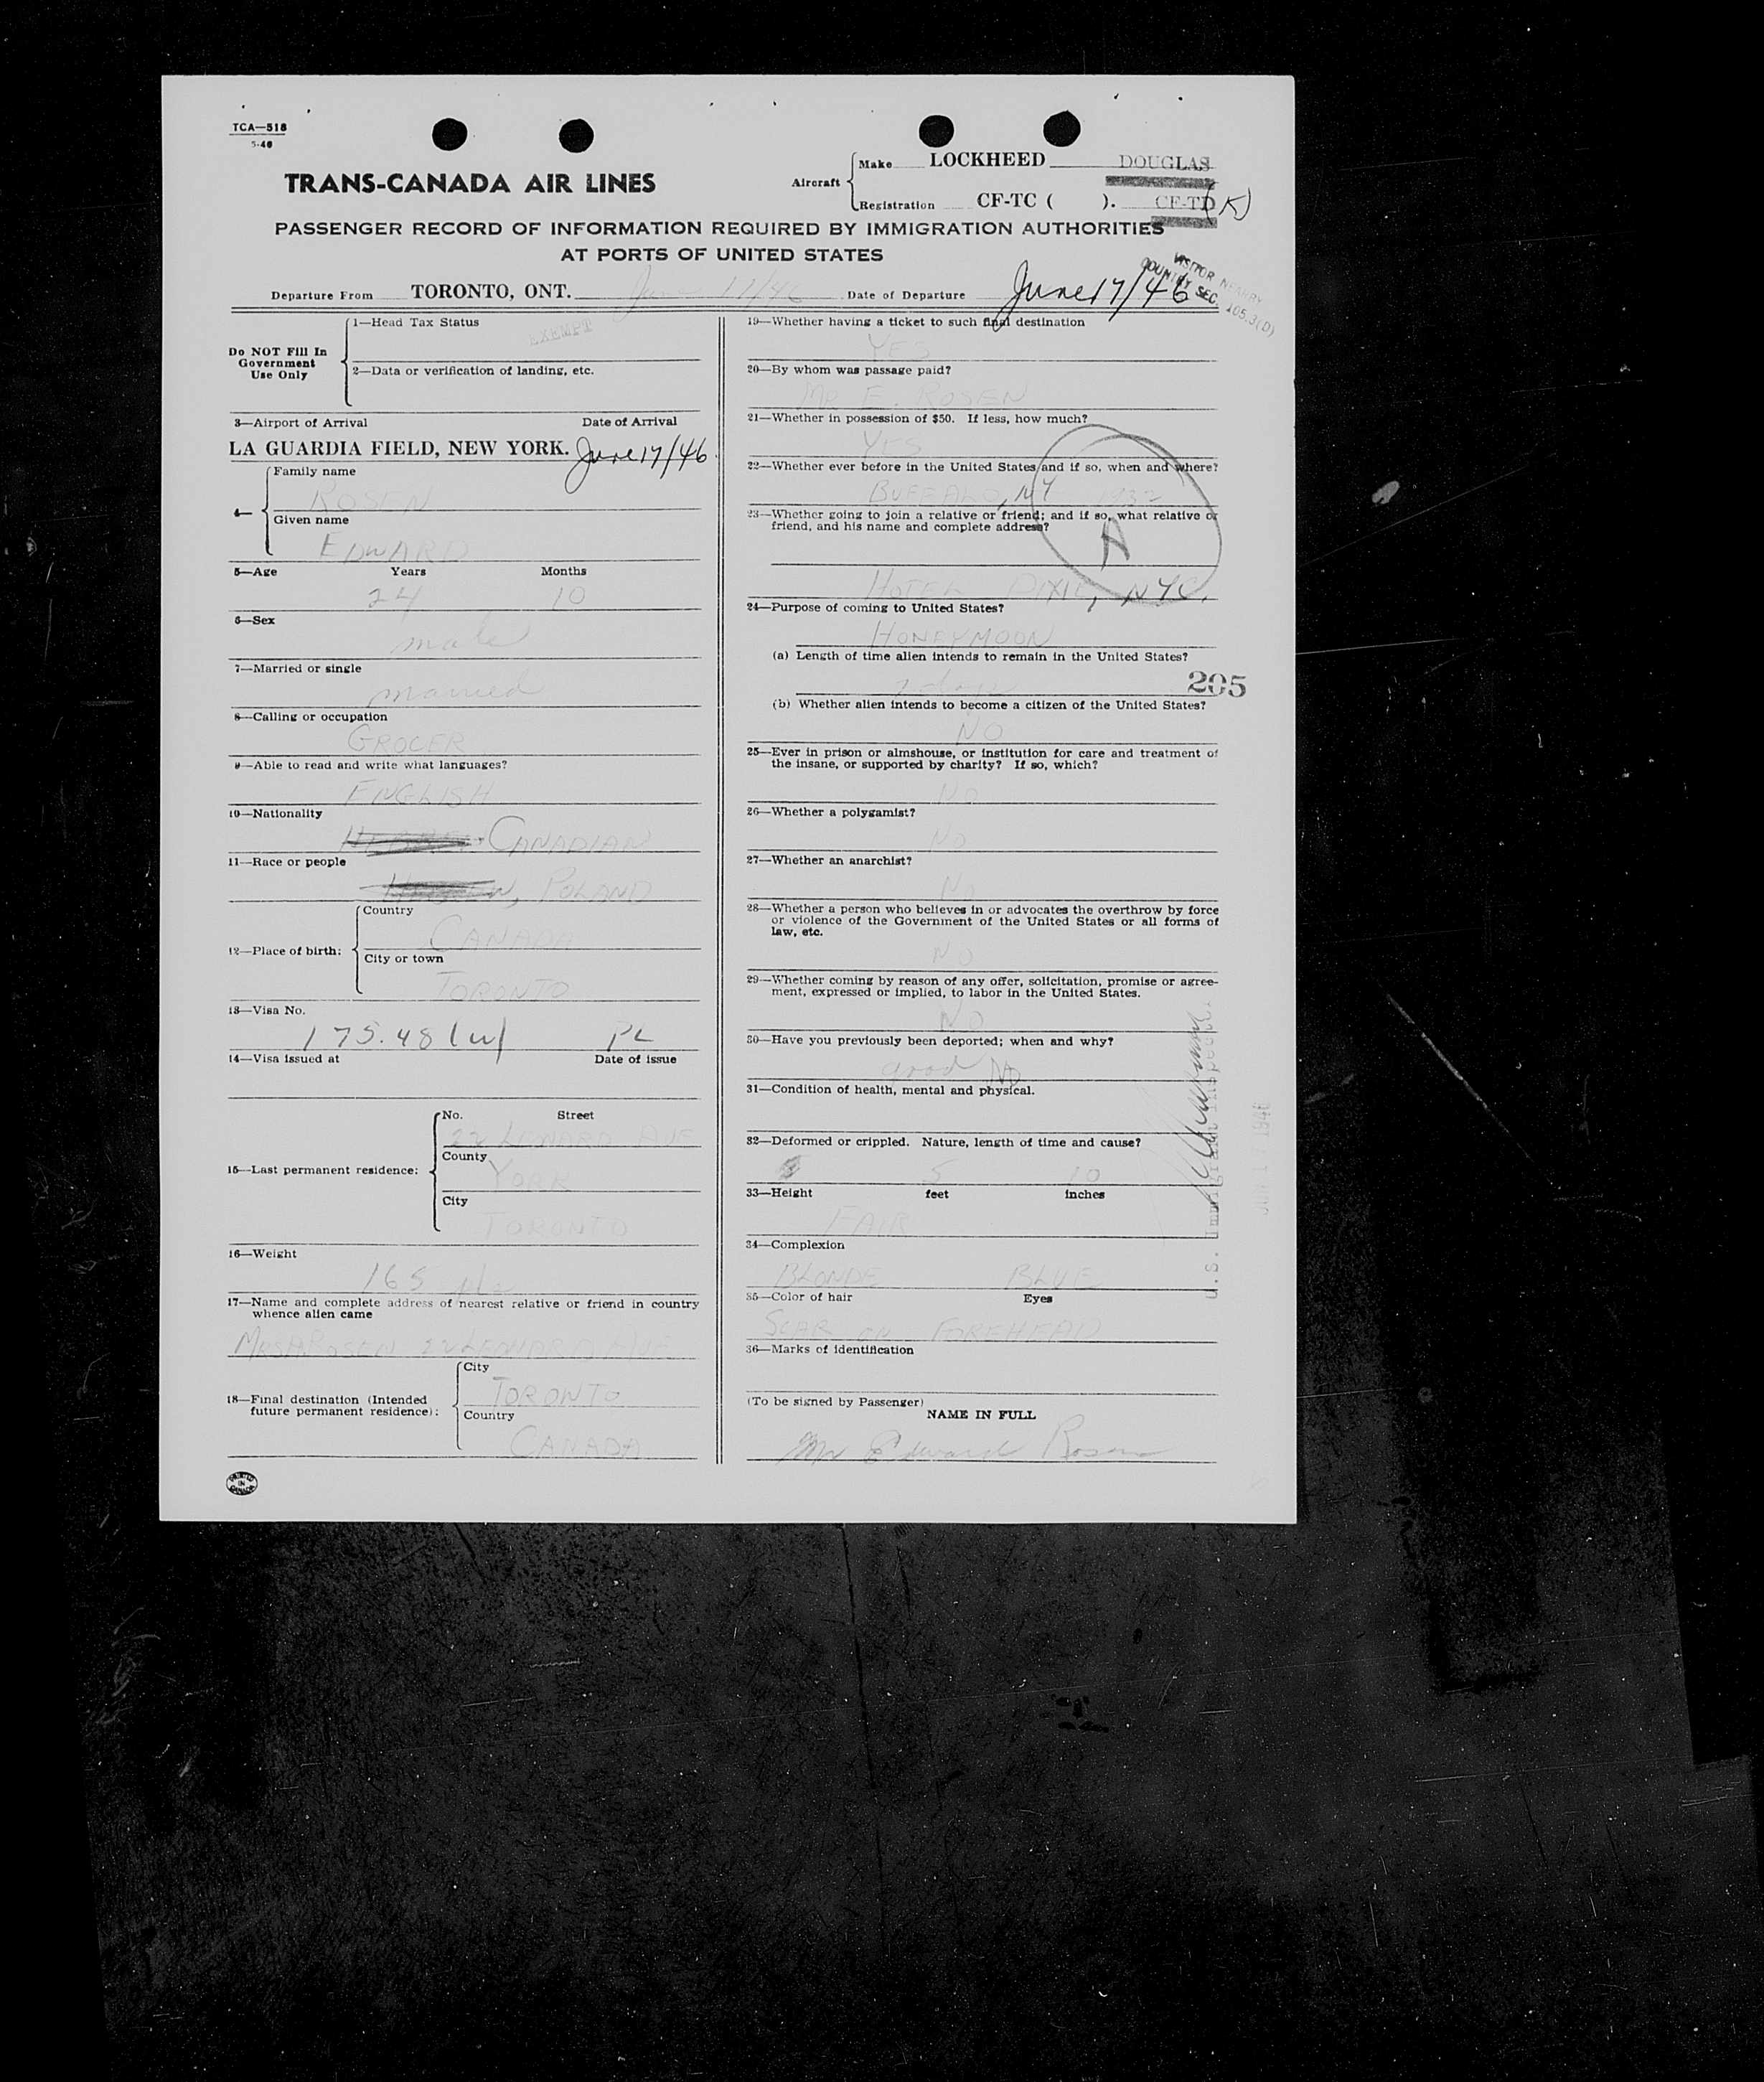 TCA—518
5-46
TRANS-CANADA AIR LINES
Aircraft
Make LOCKHEED DOUGLAS
Registration CF-TC ( ). CF-TD (K)
PASSENGER RECORD OF INFORMATION REQUIRED BY IMMIGRATION AUTHORITIES
AT PORTS OF UNITED STATES
VISITOR
COUNTRY SEC. 105.3(D)
Departure From TORONTO, ONT. June 17/46 Date of Departure June 17/46
Do NOT Fill In
Government
Use Only
1—Head Tax Status
EXEMPT
2—Data or verification of landing, etc.
3—Airport of Arrival Date of Arrival
LA GUARDIA FIELD, NEW YORK. June 17/46
4—
Family name
ROSEN
Given name
EDWARD
5—Age Years Months
24 10
6—Sex
male
7—Married or single
married
8—Calling or occupation
GROCER
9—Able to read and write what languages?
ENGLISH
10—Nationality
CANADIAN
11—Race or people
POLAND
12—Place of birth:
Country
CANADA
City or town
TORONTO
13—Visa No.
175.48 (w) PL
14—Visa issued at Date of issue
15—Last permanent residence:
No. Street
22 LENARD AVE
County
YORK
City
TORONTO
16—Weight
165
17—Name and complete address of nearest relative or friend in country
whence alien came
ROSEN 22 LENARD AVE
18—Final destination (Intended
future permanent residence):
City
TORONTO
Country
CANADA
19—Whether having a ticket to such final destination
YES
20—By whom was passage paid?
MR E. ROSEN
21—Whether in possession of $50. If less, how much?
YES
22—Whether ever before in the United States and if so, when and where?
BUFFALO, NY 1932
23—Whether going to join a relative or friend; and if so, what relative or
friend, and his name and complete address?
A
HOTEL DIXIE, NYC.
24—Purpose of coming to United States?
HONEYMOON
(a) Length of time alien intends to remain in the United States?
7 days
205
(b) Whether alien intends to become a citizen of the United States?
NO
25—Ever in prison or almshouse, or institution for care and treatment of
the insane, or supported by charity? If so, which?
NO
26—Whether a polygamist?
NO
27—Whether an anarchist?
NO
28—Whether a person who believes in or advocates the overthrow by force
or violence of the Government of the United States or all forms of
law, etc.
NO
29—Whether coming by reason of any offer, solicitation, promise or agree-
ment, expressed or implied, to labor in the United States.
NO
30—Have you previously been deported; when and why?
good NO
31—Condition of health, mental and physical.
32—Deformed or crippled. Nature, length of time and cause?
5 10
33—Height feet inches
FAIR
34—Complexion
BLONDE BLUE
35—Color of hair Eyes
SCAR ON FOREHEAD
36—Marks of identification
U.S. Immigrant Inspector
(To be signed by Passenger)
NAME IN FULL
Mr Edward Rosen
PRINTED
IN
CANADA